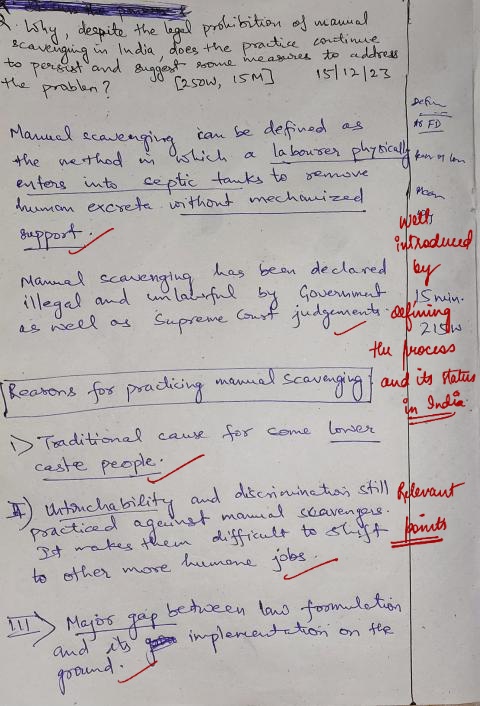 Q. Why, despite the legal prohibition of manual
scavenging in India, does the practice continue
to persist and suggest some measures to address
the problem? [250W, 15M] 15/12/23
Manual scavenging can be defined as
the method in which a labourer physically
enters into septic tanks to remove
human excreta without mechanized
support.
Manual scavenging has been declared
illegal and unlawful by Government
as well as Supreme Court judgements.
Well
introduced
by
15 min.
defining
215W
the process
and its status
in India
Reasons for practicing manual scavenging
i) Traditional cause for some lower
caste people.
II) Untouchability and discrimination still
practiced against manual scavengers.
It makes them difficult to shift
to other more humane jobs.
Relevant
points
III) Major gap between law formulation
and its implementation on the
ground.